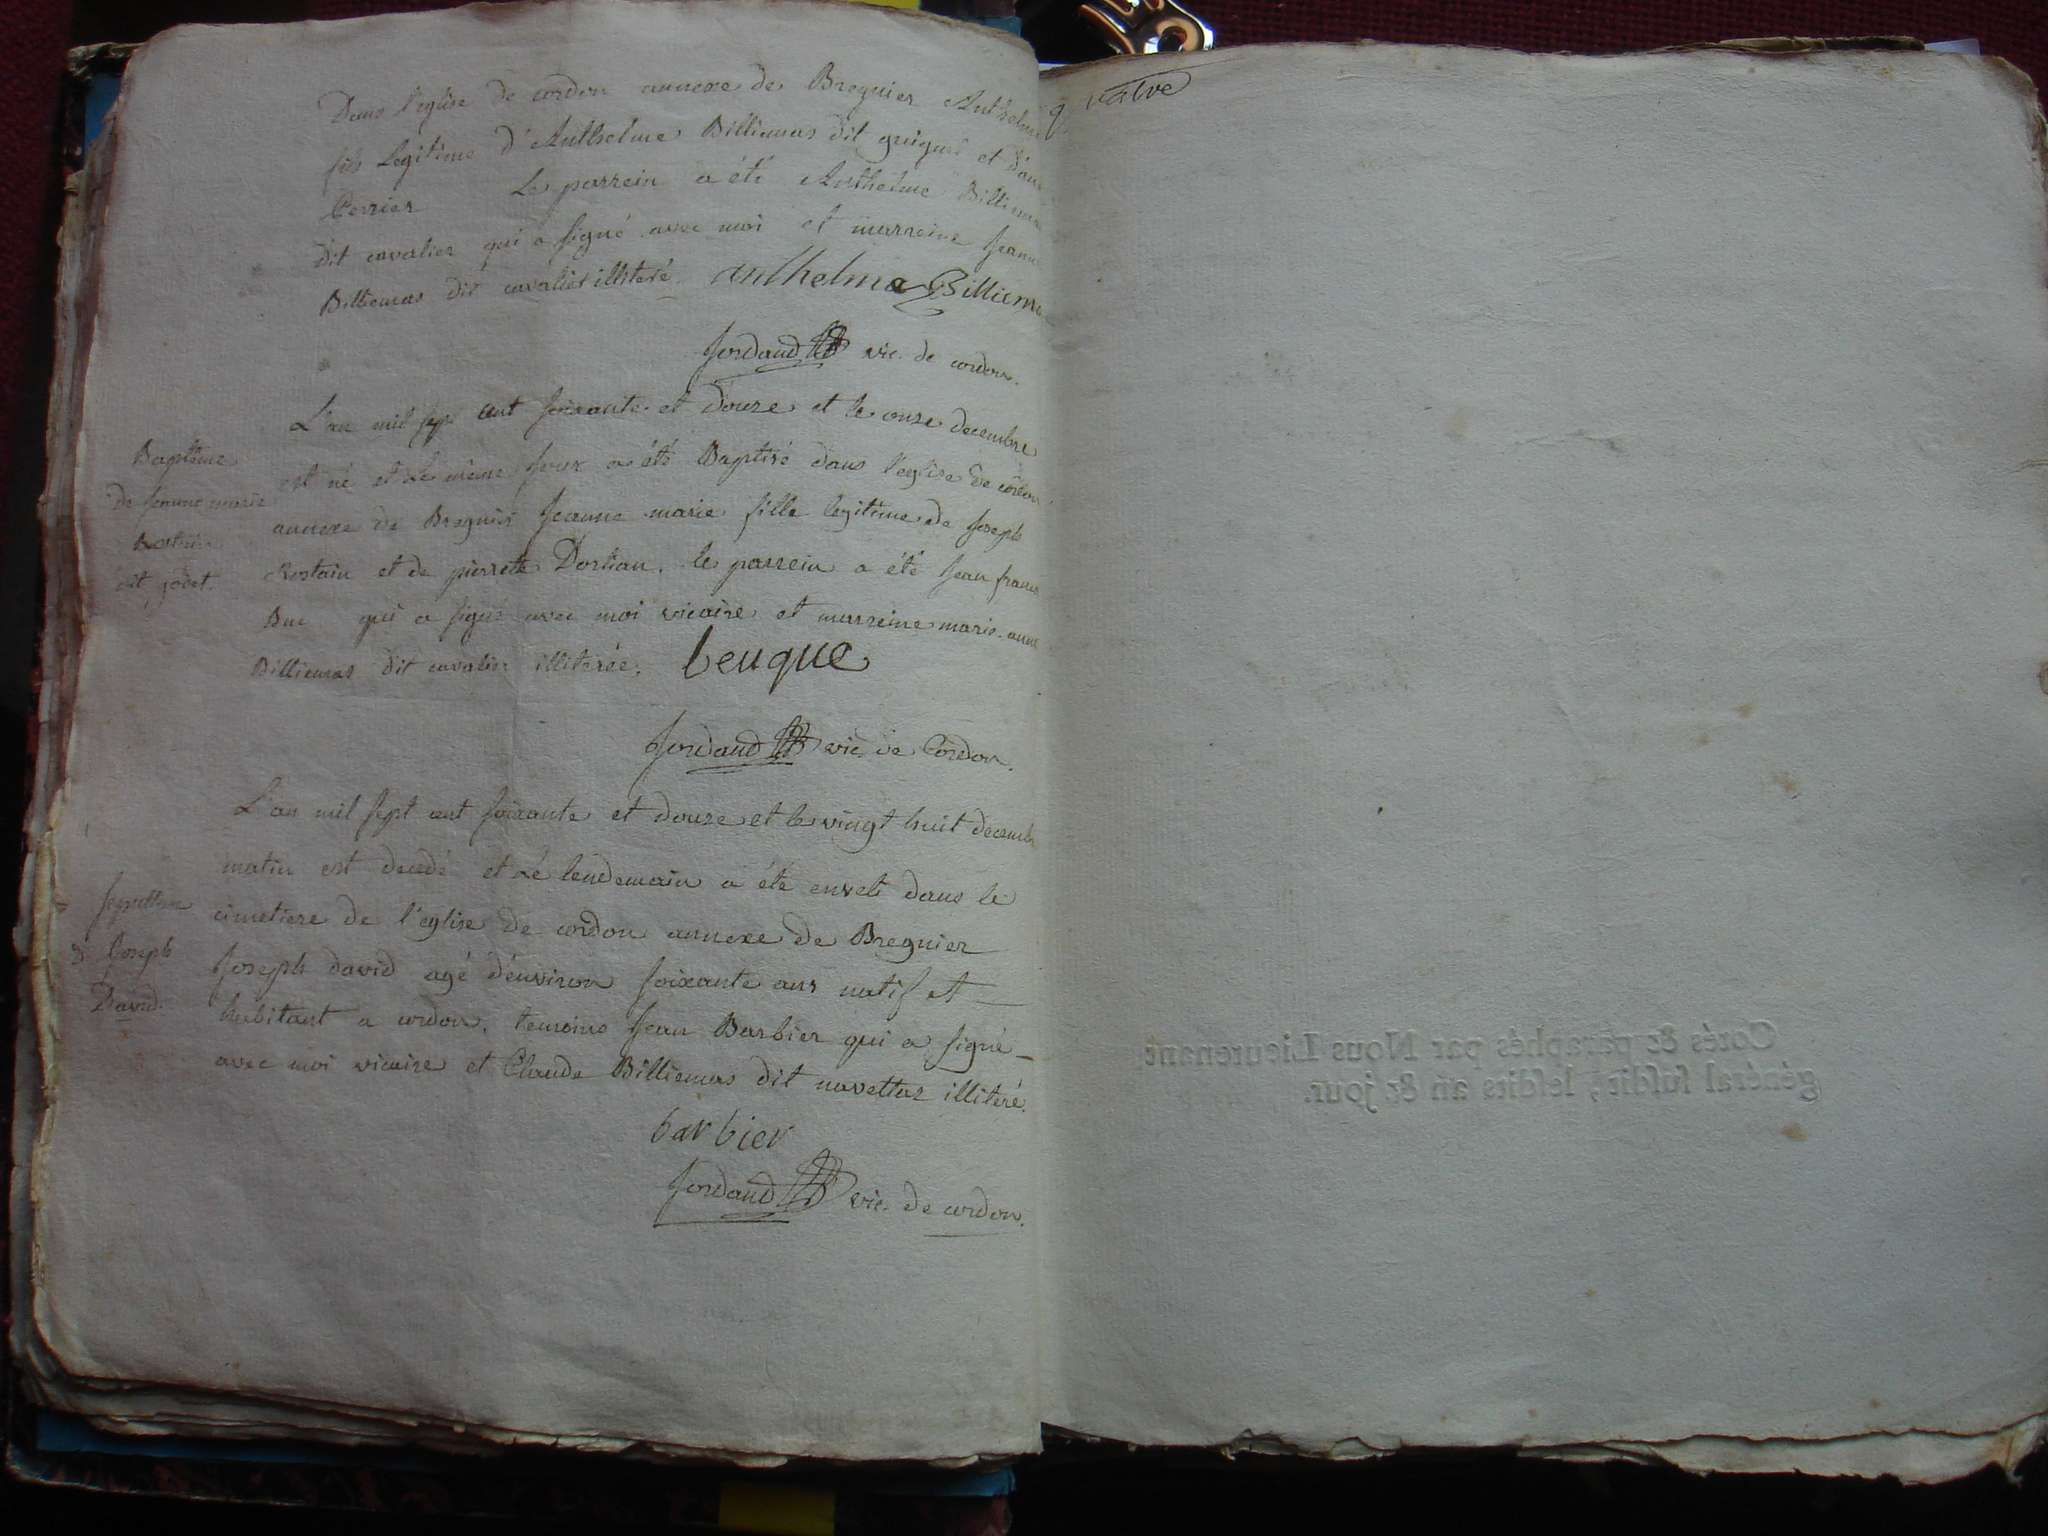 Dans l'eglise de cordon annexe de Bregnier Anthelme
fils Legitime d'Anthelme Billiemas dit et d'
Perrier Le parrein a été Anthelme Billiemas
dit cavalier qui a signé avec moi et marreine Jeanne
Billiemas dit cavalier illiteré. anthelme Billiema
Jordaud vic. de cordon.
L'an mil sept cent soixante et douze et le onze decembre
est né et Le même jour a été Baptisé dans l'eglise de cordon
annexe de Bregnier Jeanne marie fille legitime de Joseph
Rostain et de pierrete Dortian. le parrein a été Jean francois
Buc qui a signé avec moi vicaire et marreine marie anne
Billiemas dit cavalier illiterée. beuque
Jordaud vic. de Cordon.
Baptême
de Jeanne marie
Rostain
dit
L'an mil sept cent soixante et douze et le vingt huit decembre
matin est decedé et Le lendemain a été enveli dans le
cimetiere de l'eglise de cordon annexe de Bregnier
Joseph david agé d'environ soixante ans natif et
habitant a cordon. temoins Jean Barbier qui a signé
avec moi vicaire et Claude Billiemas dit navettaz illiteré.
barbier
Jordaud vic. de cordon.
Sepulture
d Joseph
David.
quatre
Cotés & paraphés par Nous Lieutenant
général susdit, lesdits an & jour.